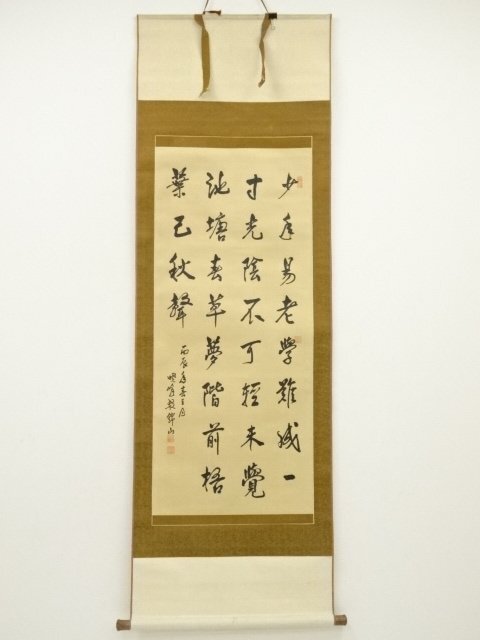 少年易老學難成一
寸光陰不可輕未覺
池塘春草夢階前梧
葉已秋聲
丙辰年春三月